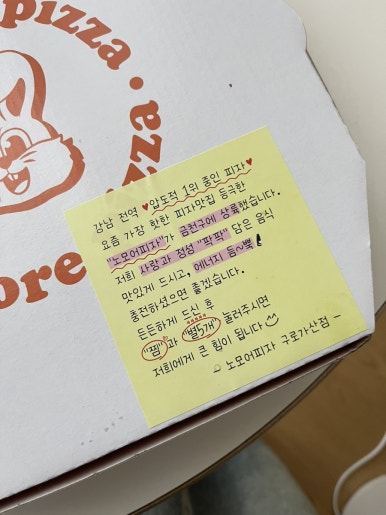 pizza
강남 전역 ♥압도적 1위 중인 피자♥
요즘 가장 핫한 피자맛집 등극한
"노모어피자"가 금천구에 상륙했습니다.
저희 사랑과 정성 "팍팍" 담은 음식
맛있게 드시고, 에너지 듬~뿍!
충전하셨으면 좋겠습니다.
든든하게 드신 후
"찜"과 "별5개" 눌러주시면
저희에게 큰 힘이 됩니다
- 노모어피자 구로가산점 -
ore
zza